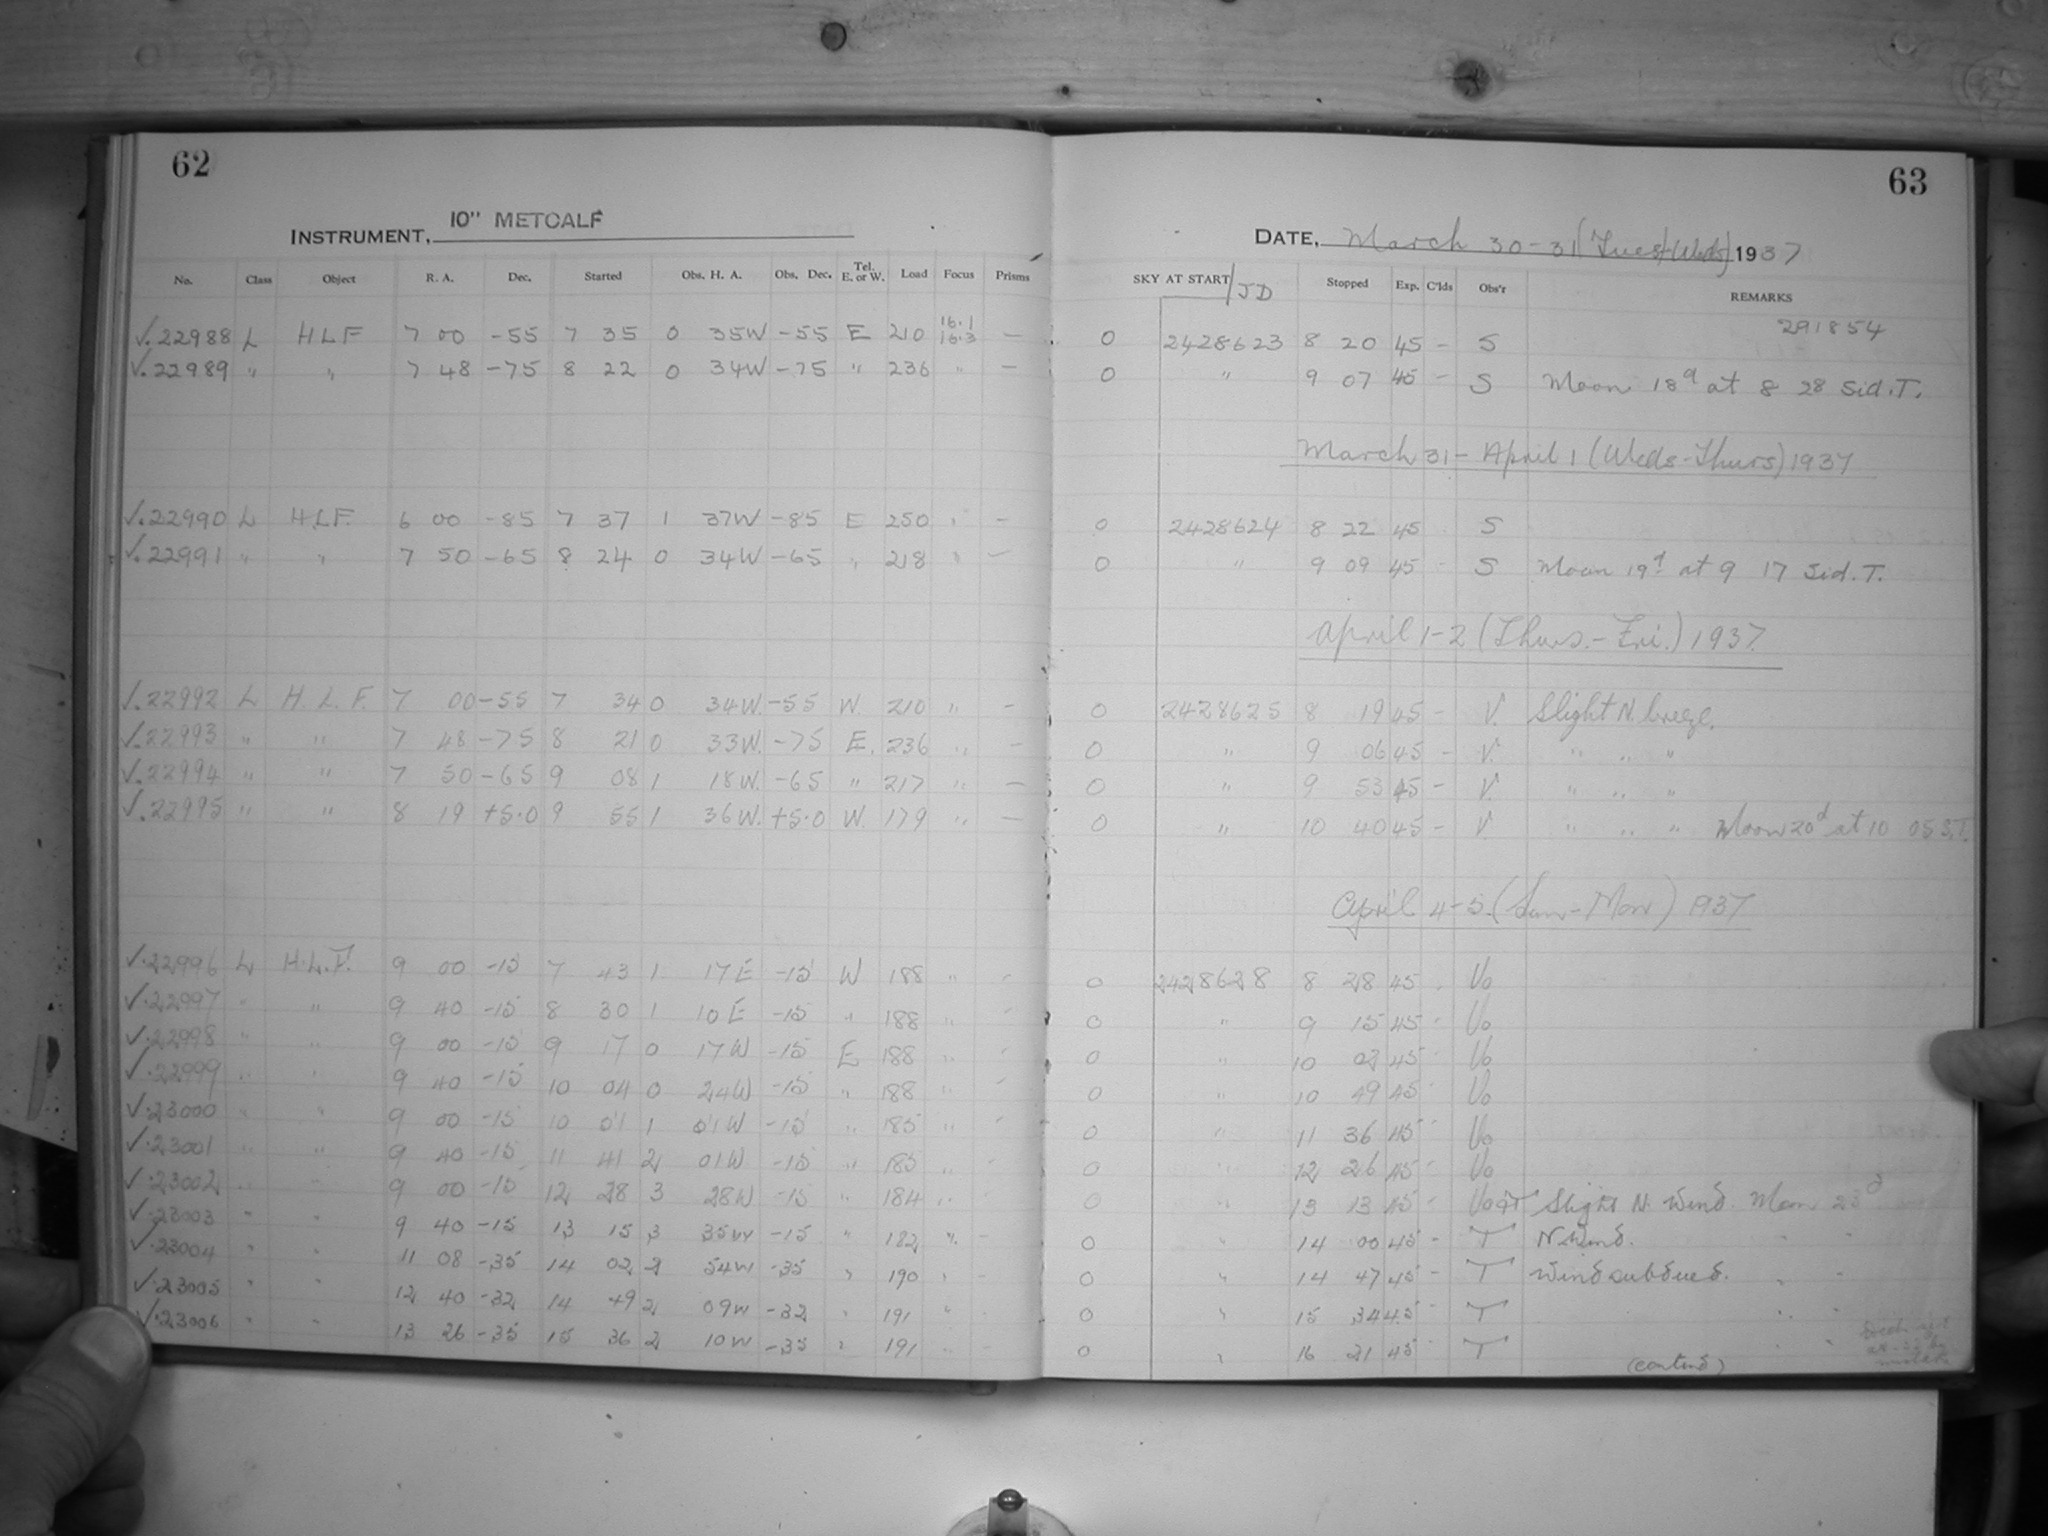 62
INSTRUMENT, 10" METCALF
No. Class Object R. A. Dec. Started Obs. H. A. Obs. Dec. Tel. E. or W. Load Focus Prisms
√.22988 L HLF 7 00 -55 7 35 0 35W -55 E 210 16.1 16.3 —
√.22989 " " 7 48 -75 8 22 0 34W -75 " 236 " —
√.22990 L H.L.F. 6 00 -85 7 37 1 37W -85 E 250 " —
√.22991 " " 7 50 -65 8 24 0 34W -65 " 218 " —
√.22992 L H. L. F. 7 00 -55 7 34 0 34W. -55 W. 210 " —
√.22993 " " 7 48 -75 8 21 0 33W. -75 E. 236 " —
√.22994 " " 7 50 -65 9 08 1 18W. -65 " 217 " —
√.22995 " " 8 19 +5.0 9 55 1 36W. +5.0 W 179 " —
√.22996 L H.L.F. 9 00 -15 7 43 1 17E -15 W 188 " -
√.22997 " " 9 40 -15 8 30 1 10E -15 " 188 " -
√.22998 " " 9 00 -15 9 17 0 17W -15 E 188 " -
√.22999 " " 9 40 -15 10 04 0 24W -15 " 188 " -
√.23000 " " 9 00 -15 10 1 01W -15 " 185 " -
√.23001 " " 9 40 -15 11 41 2 01W -15 " 185 " -
√.23002 " " 9 00 -15 12 28 3 28W -15 " 184 " -
√.23003 " " 9 40 -15 13 15 3 35W -15 " 182 " -
√.23004 " " 11 08 -35 14 02 2 54W -35 " 190 " -
√.23005 " " 12 40 -32 14 49 2 09W -32 " 191 " -
√.23006 " " 13 26 -35 15 36 2 10W -35 " 191 " -
63
DATE, March 30-31 (Tues-Weds) 1937
SKY AT START / JD Stopped Exp. C'lds Obs'r REMARKS
291854
0 2428623 8 20 45 - S
0 " 9 07 45 - S Moon 18d at 8 28 Sid.T.
March 31- April 1 (Weds-Thurs) 1937
0 2428624 8 22 45 S
0 " 9 09 45 - S Moon 19d at 9 17 Sid.T.
April 1-2 (Thurs.-Fri.) 1937
0 2428625 8 19 45 - V. Slight N. breeze.
0 " 9 06 45 - V. " " "
0 " 9 53 45 - V. " " "
0 " 10 40 45 - V " " " Moon 20d at 10 05 S.T.
April 4-5 (Sun-Mon) 1937
0 2428628 8 28 45 . Vo
0 " 9 15 45 - Vo
0 " 10 02 45 - Vo
0 " 10 49 45 - Vo
0 " 11 36 45 - Vo
0 " 12 26 45 - Vo
0 " 13 13 45 - Vo&T Slight N. Wind. Moon 23d
0 " 14 00 45 - T N Wind. " "
0 " 14 47 45 - T Wind subdued. " "
0 " 15 34 45 - T " "
0 " 16 21 45 - T " "
(contnd)